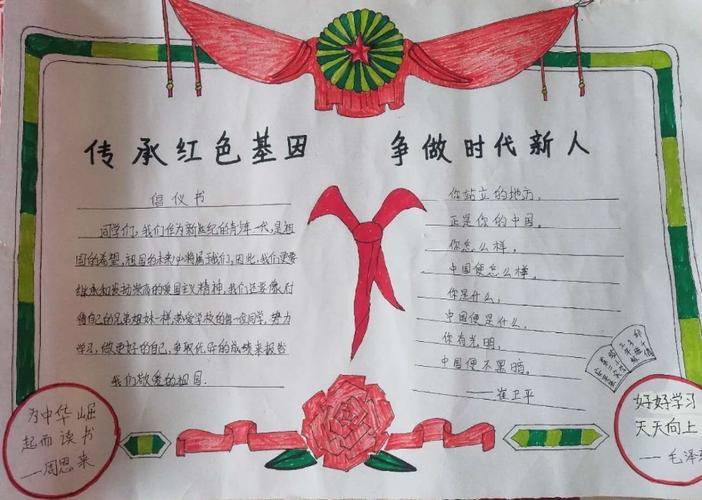 传承红色基因 争做时代新人
倡仪书
同学们,我们作为新世纪的青年一代,是祖
国的希望,祖国的未来必将属于我们,因此,我们更要
继承和发扬崇高的爱国主义精神,我们还要像对
待自己的兄弟姐妹一样,热爱学校的每一位同学,努力
学习,做更好的自己,争取优异的成绩来报答
我们敬爱的祖国.
你站立的地方,
正是你的中国,
你怎么样,
中国便怎么样,
你是什么,
中国便是什么,
你有光明,
中国便不黑暗,
——崔卫平
为中华崛
起而读书
——周恩来
好好学习
天天向上
——毛泽东